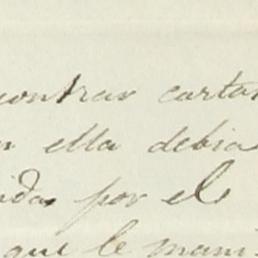 contrar carta
ella debia
idas por el
que le mani